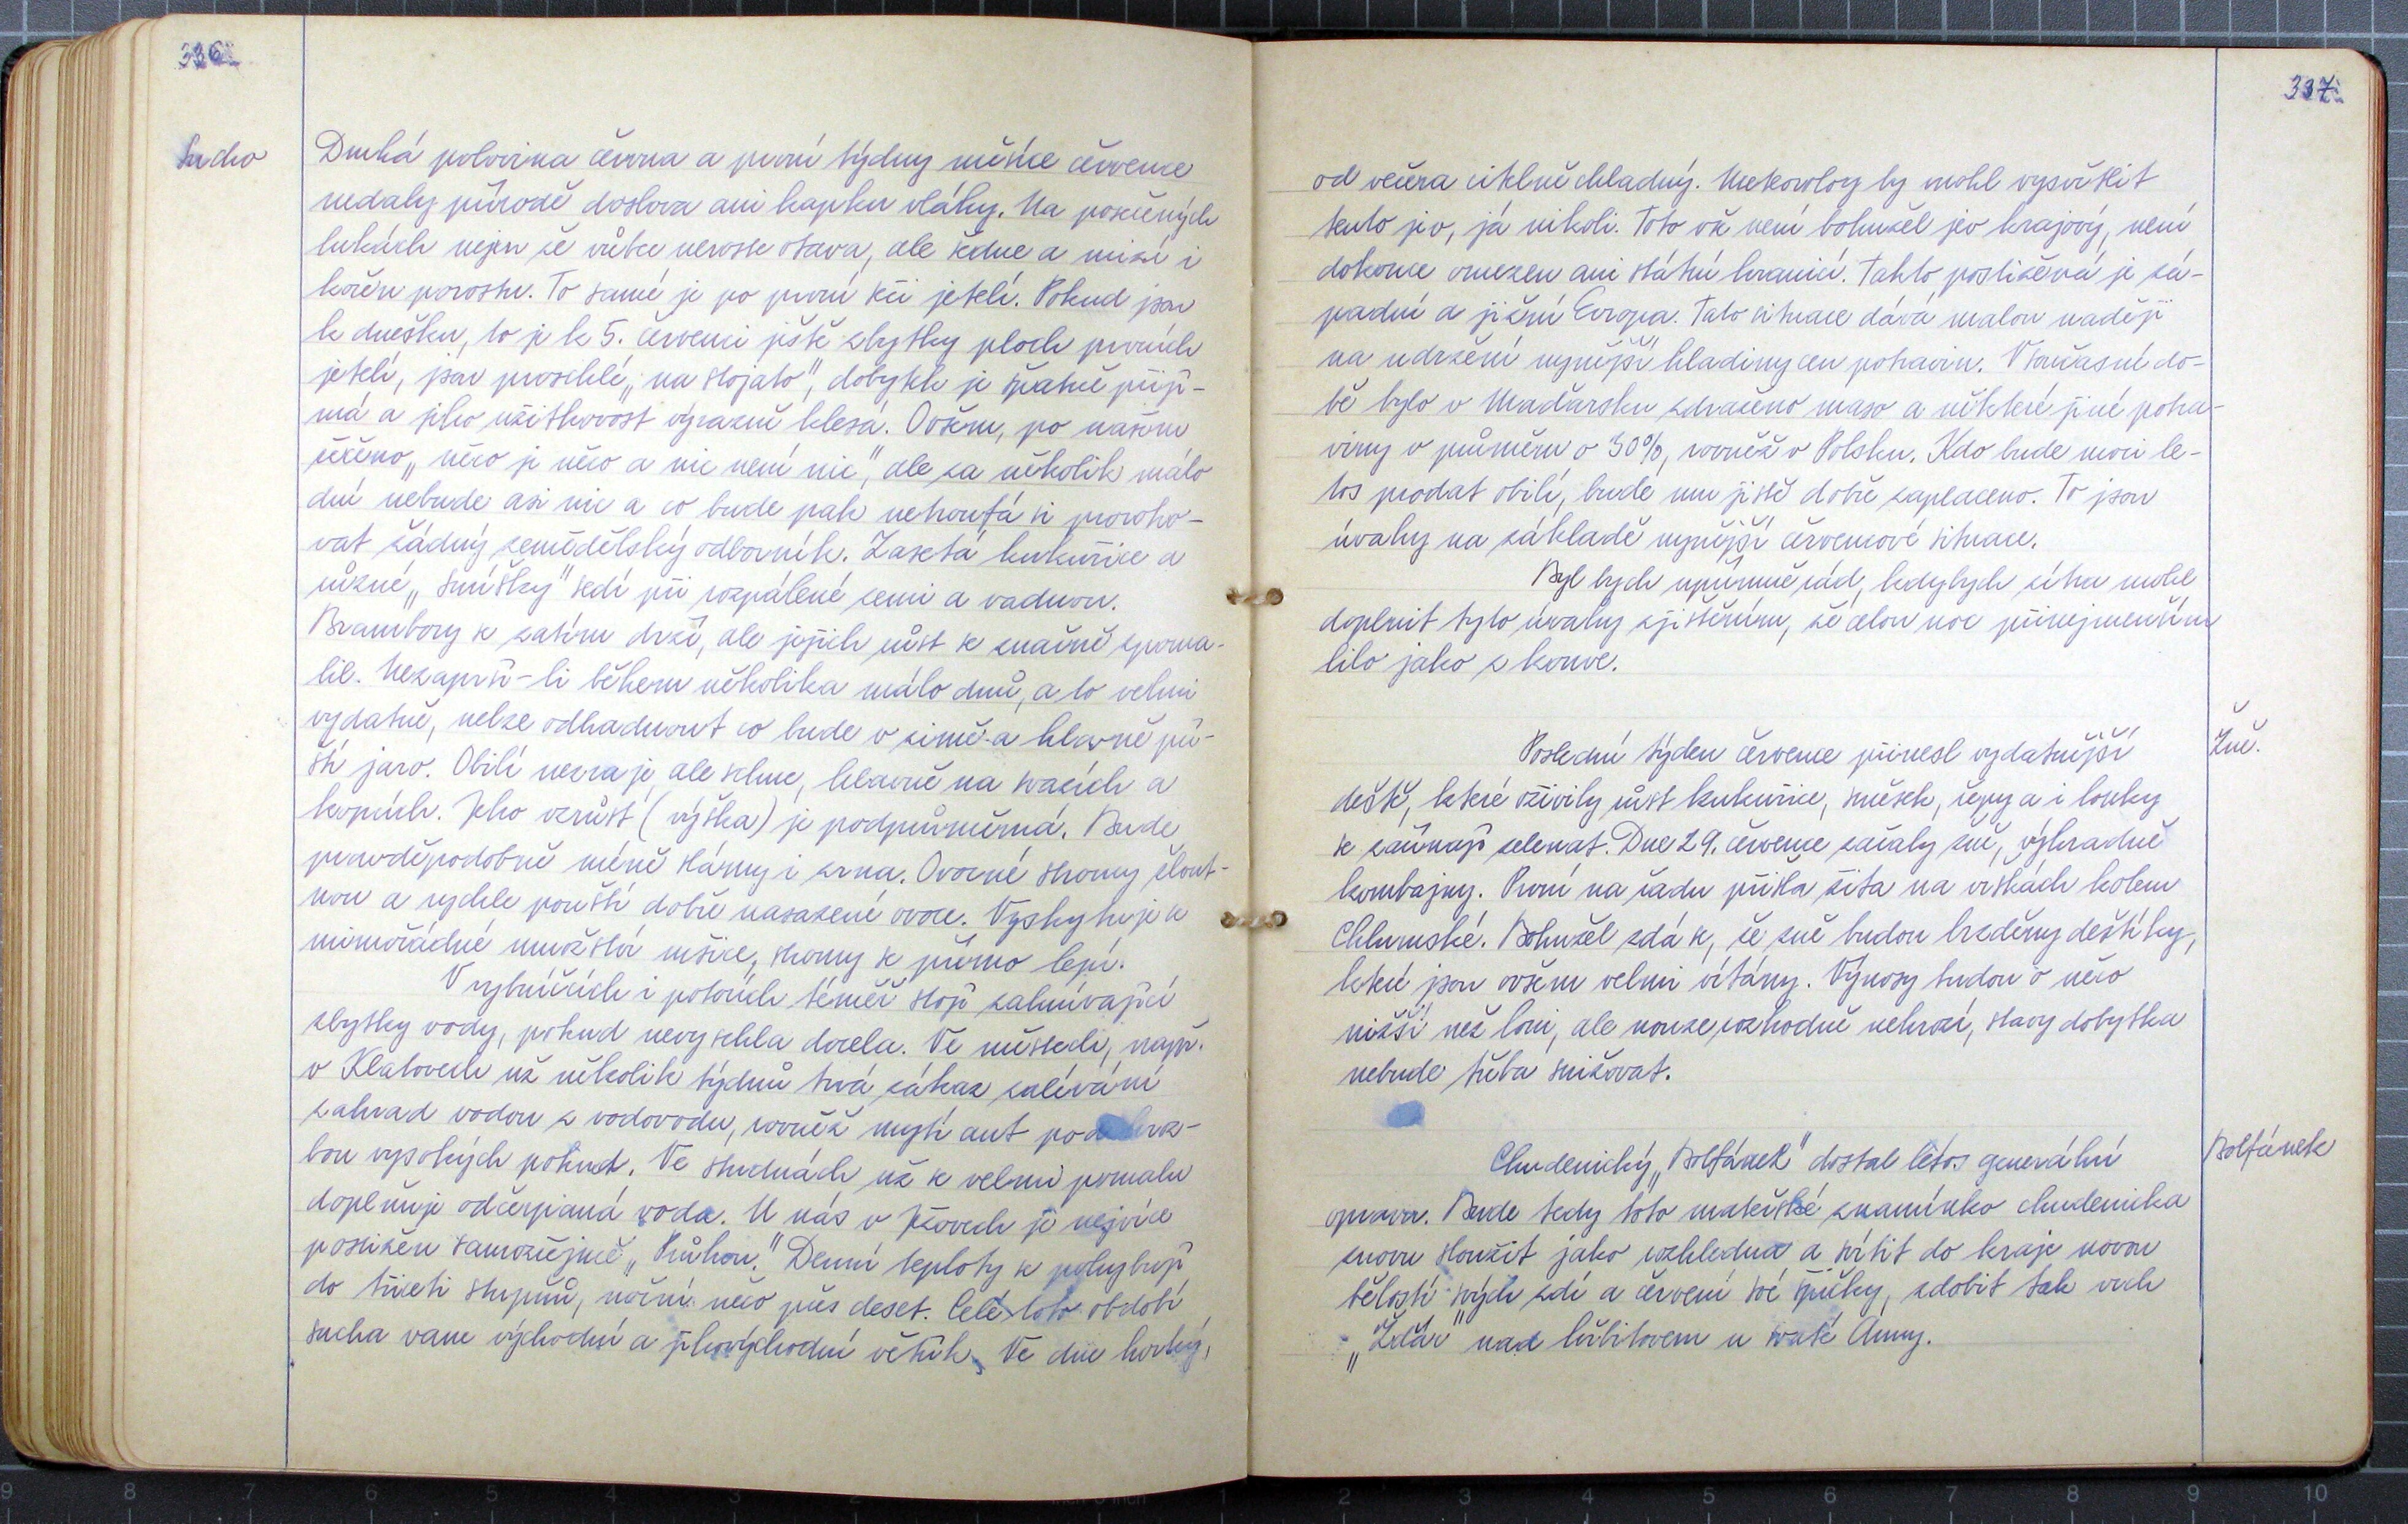 336
Sucho
Druhá polovina června a první týdny měsíce července
nedaly přírodě doslova ani kapku vláhy. Na posečených
lukách nejen že vůbec neroste otava, ale šedne a mizí i
kořen porostu. To samé je po první seči jetelí. Pokud jsou
k dnešku, to je k 5. červenci ještě zbytky ploch prvních
jetelí, jsou proschlé „na stojato", dobytek je špatně přijí-
má a jeho užitkovost výrazně klesá. Ovšem, po našem
řečeno „něco je něco a nic není nic", ale za několik málo
dní nebude asi nic a co bude pak netroufá si proroko-
vat žádný zemědělský odborník. Zasetá kukuřice a
různé „smíšky" sedí při rozpálené zemi a vadnou.
Brambory se zatím drží, ale jejich růst se značně zpoma-
lil. Nezaprší-li během několika málo dnů, a to velmi
vydatně, nelze odhadnout co bude v zimě a hlavně pří-
ští jaro. Obilí nezraje, ale schne, hlavně na svazích a
kopcích. Jeho vzrůst (výška) je podprůměrná. Bude
pravděpodobně méně slámy i zrna. Ovocné stromy žlout-
nou a rychle pouští dobře nasazené ovoce. Vyskytuje se
mimořádné množství mšice, stromy se přímo lepí.
V rybníčcích i potocích téměř stojí zahnívající
zbytky vody, pokud nevyschla docela. Ve městech, např.
v Klatovech už několik týdnů trvá zákaz zalévání
zahrad vodou z vodovodu, rovněž mytí aut pod hroz-
bou vysokých pokut. Ve studnách už se velmi pomalu
doplňuje odčerpaná voda. U nás v Ježovech je nejvíce
postižen samozřejmě „Průhon." Denní teploty se pohybují
do třiceti stupňů, noční něco přes deset. Celé toto období
sucha vane východní a jihovýchodní větřík. Ve dne horký,
337
od večera citelně chladný. Meteorolog by mohl vysvětlit
tento jev, já nikoli. Toto vš není bohužel jev krajový, není
dokonce omezen ani státní hranicí. Takto postižená je zá-
padní a jižní Evropa. Tato situace dává malou naději
na udržení nynější hladiny cen potravin. V současné do-
bě bylo v Maďarsku zdraženo maso a některé jiné potra-
viny v průměru o 30%, rovněž v Polsku. Kdo bude moci le-
tos prodat obilí, bude mu jistě dobře zaplaceno. To jsou
úvahy na základě nynější červencové situace.
Byl bych upřímně rád, kdybych zítra mohl
doplnit tyto úvahy zjištěním, že celou noc přinejmenším
lilo jako z konve.
Žně.
Poslední týden července přinesl vydatnější
deště, které oživily růst kukuřice, směsek, řepy a i louky
se začínají zelenat. Dne 29. července začaly žně, výhradně
kombajny. První na řadu přišla žita na vrškách kolem
Chlumské. Bohužel zdá se, že žně budou brzděny deštíky,
které jsou ovšem velmi vítány. Výnosy budou o něco
nižší než loni, ale nouze rozhodně nehrozí, stavy dobytka
nebude třeba snižovat.
Bolfánek
Chudenický „Bolfánek" dostal letos generální
opravu. Bude tedy toto mateřské znamínko chudenicka
znovu sloužit jako rozhledna a svítit do kraje novou
bělostí svých zdí a červení své špičky, zdobit tak vrch
„Žďár" nad hřbitovem u svaté Anny.